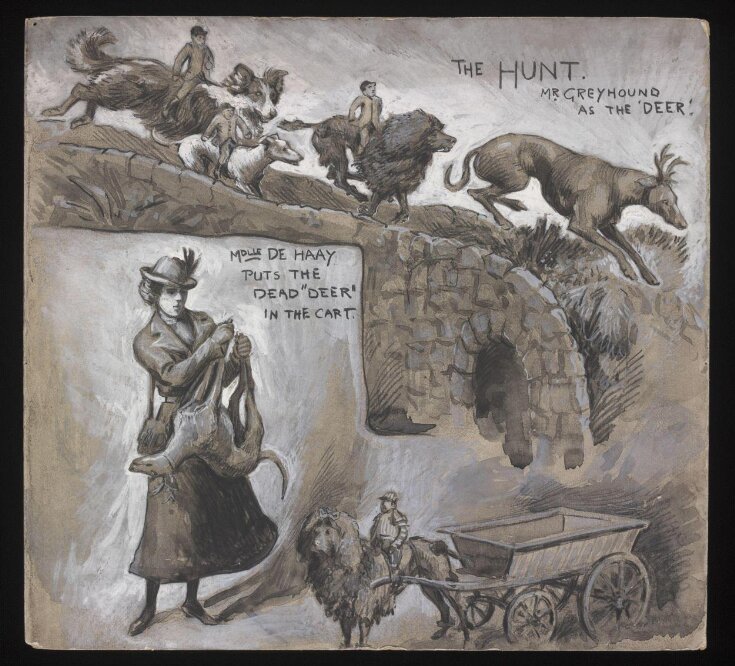 THE HUNT.
MR GREYHOUND
AS THE 'DEER'.
MDLLE DE HAAY
PUTS THE
DEAD "DEER"
IN THE CART.